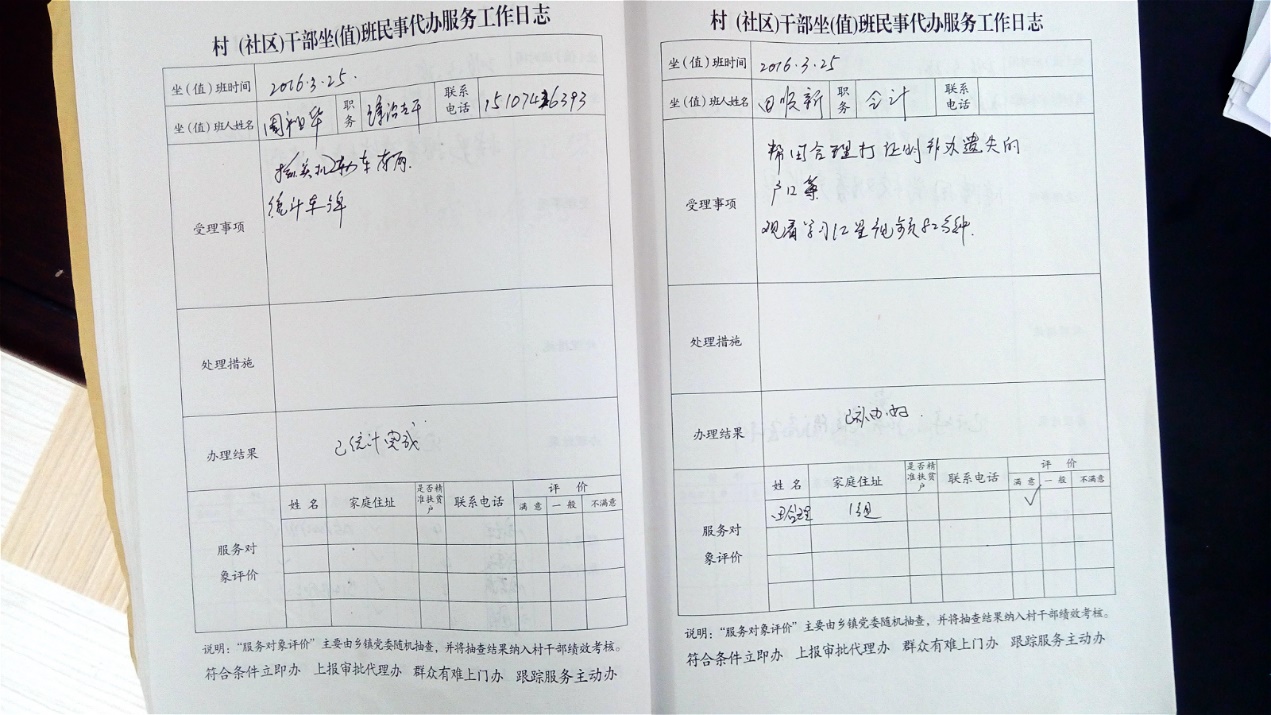 村（社区)干部坐(值)班民事代办服务工作日志
坐(值)班时间 2016.3.25.
坐(值)班人姓名 周和华 职务 联系电话
受理事项
统计车辆
处理措施
办理结果 已统计完成
服务对象评价
姓名 家庭住址 是否精准扶贫户 联系电话 评价
满意 一般 不满意
说明：“服务对象评价”主要由乡镇党委随机抽查，并将抽查结果纳入村干部绩效考核。
符合条件立即办 上报审批代理办 群众有难上门办 跟踪服务主动办
村（社区)干部坐(值)班民事代办服务工作日志
坐(值)班时间 2016.3.25
坐(值)班人姓名 田顺新 职务 会计 联系电话
受理事项
帮田合理打证明补办遗失的
户口簿
观看学习红星视频82分钟.
处理措施
办理结果 已补办好.
服务对象评价
姓名 家庭住址 是否精准扶贫户 联系电话 评价
满意 一般 不满意
田合理 1组 ✓
说明：“服务对象评价”主要由乡镇党委随机抽查，并将抽查结果纳入村干部绩效考核。
符合条件立即办 上报审批代理办 群众有难上门办 跟踪服务主动办